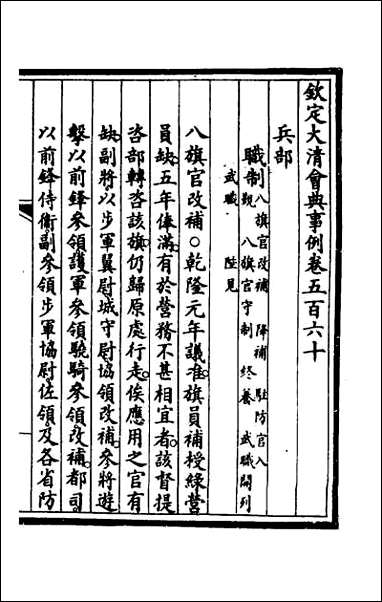 欽定大清會典事例卷五百六十
兵部
職制八旗官改補 降補 駐防官入
覲 八旗官守制 終養 武職開列
武職 陛見
八旗官改補○乾隆元年議准旗員補授綠營
員缺五年俸滿有於營務不甚相宜者該督提
咨部轉咨該旗仍歸原處行走俟應用之官有
缺副將以步軍翼尉城守尉協領改補參將遊
擊以前鋒參領護軍參領驍騎參領改補都司
以前鋒侍衛副參領步軍協尉佐領及各省防